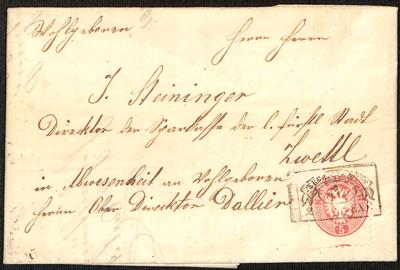 Wohlgeboren Herrn Herrn
J. Steininger
Direktor der Sparkasse der l. fürstl Stadt
Zwettl
in Abwesenheit an Wohlgeboren
Herrn Ober Direktor Dallier
5